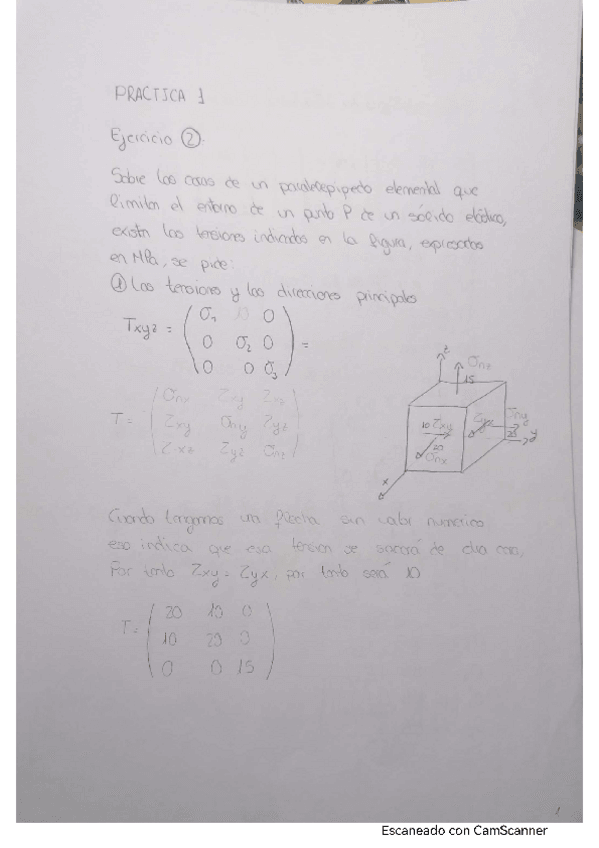 PRACTICA 1
Ejercicio ②.
Sobre las caras de un paralelepipedo elemental que
limitan el entorno de un punto P de un sólido elástico,
existen las tensiones indicadas en la figura, expresadas
en MPa, se pide:
① Las tensiones y las direcciones principales
Txyz = ( σ1 0 0
0 σ2 0
0 0 σ3 ) =
T = ( σnx τxy τxz
τxy σny τyz
τxz τyz σnz )
z
σnz
15
10 τxy
τyx
σny
y
20
σnx
x
Cuando tengamos una flecha sin valor numerico
eso indica que esa tension se sacará de otra cara,
Por tanto τxy = τyx, por tanto será 10
T = ( 20 10 0
10 20 0
0 0 15 )
1
Escaneado con CamScanner